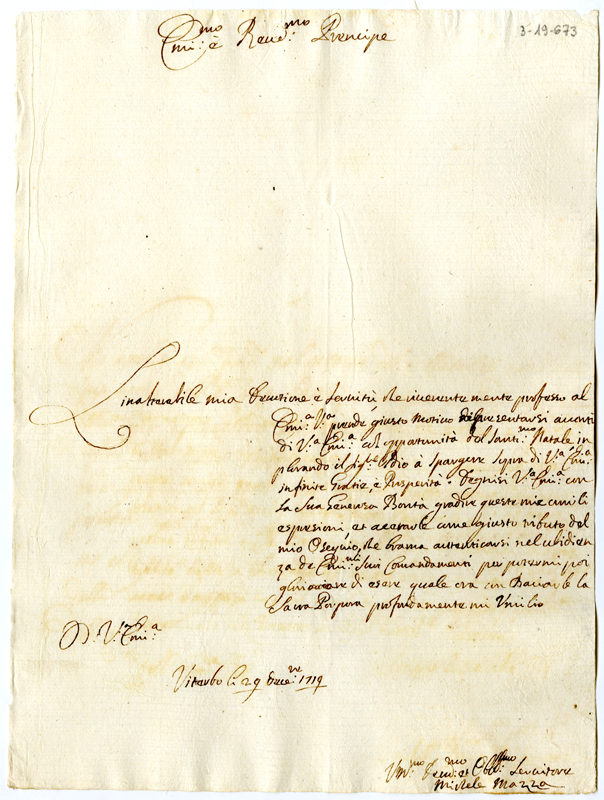 3-19-673
Em.mo è Reued.mo Prencipe
L'inalterabile mia Deuozione è Seruitù che riuerentemente professo al
Em.a V.a prende giusto motiuo di presentarsi auanti
di V.a Em.a coll'opportunità del Santi.mo Natale im
plorando il Sig.re Idio à spargere sopra di V.a Em.a
infinite Gratie, è Prosperità. Degnisi V.a Em.a con
la Sua Generosa Bontà gradire queste mie umili
espressioni, et accetarle come giusto tributo del
mio Osequio, che brama autenticarsi nel ubidien
za de Em.mi Suoi Comandamenti per potermi poi
gloriare di essere quale ora con Baciarle la
Sacra Porpora profondamente mi Vmilio
D. V.a Em.a
Viterbo li 29 Dece.re 1719
Vm.mo Deuo.mo et Obl.mo Seruitore
Michele Mazza